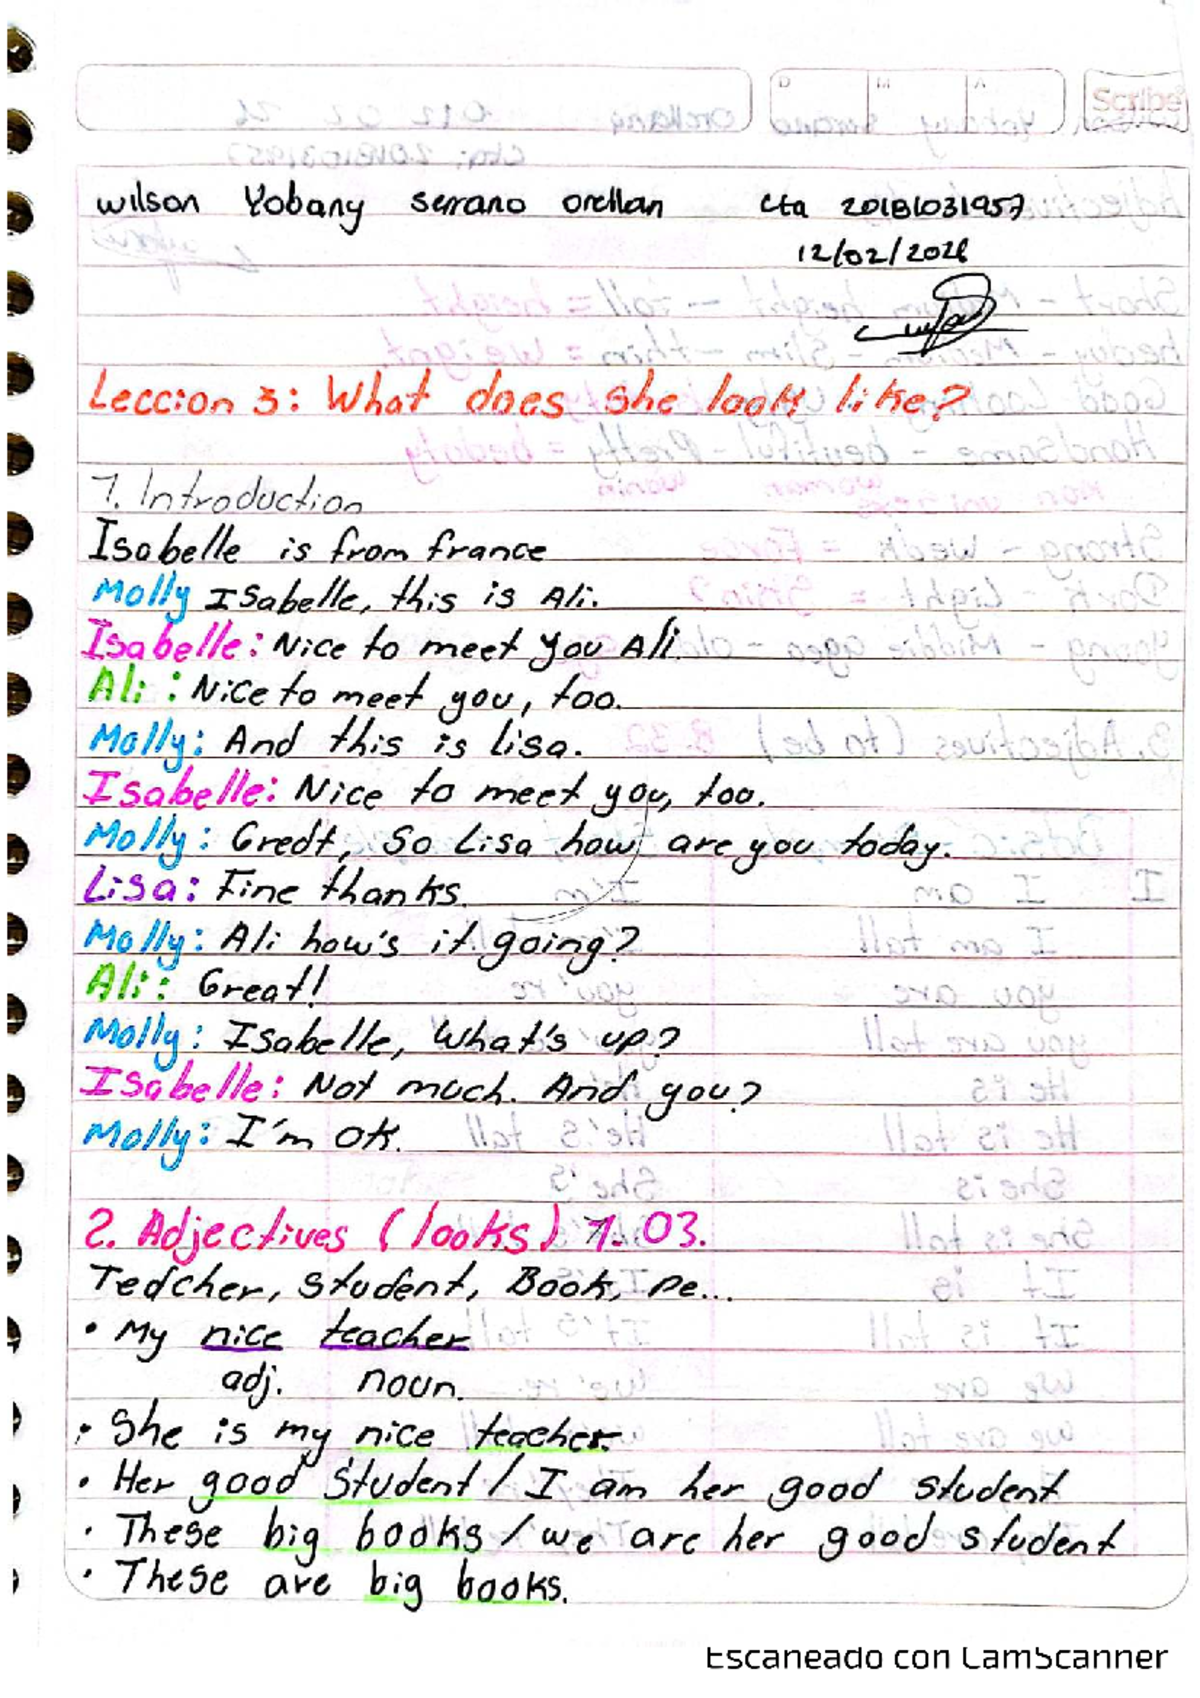 D M A Scribe
Wilson Yobany Serrano Orellan Cta 20181031957
12/02/2026
Leccion 3: What does she look like?
1. Introduction
Isabelle is from france
Molly Isabelle, this is Ali.
Isabelle: Nice to meet you Ali.
Ali: Nice to meet you, too.
Molly: And this is Lisa.
Isabelle: Nice to meet you, too.
Molly: Great, So Lisa how are you today.
Lisa: Fine thanks.
Molly: Ali how's it going?
Ali: Great!
Molly: Isabelle, What's up?
Isabelle: Not much. And you?
Molly: I'm OK.
2. Adjectives (looks) 1.03.
Teacher, Student, Book, Pe...
• My nice teacher
adj. noun.
• She is my nice teacher.
• Her good student / I am her good student
• These big books / we are her good student
• These are big books.
Escaneado con CamScanner